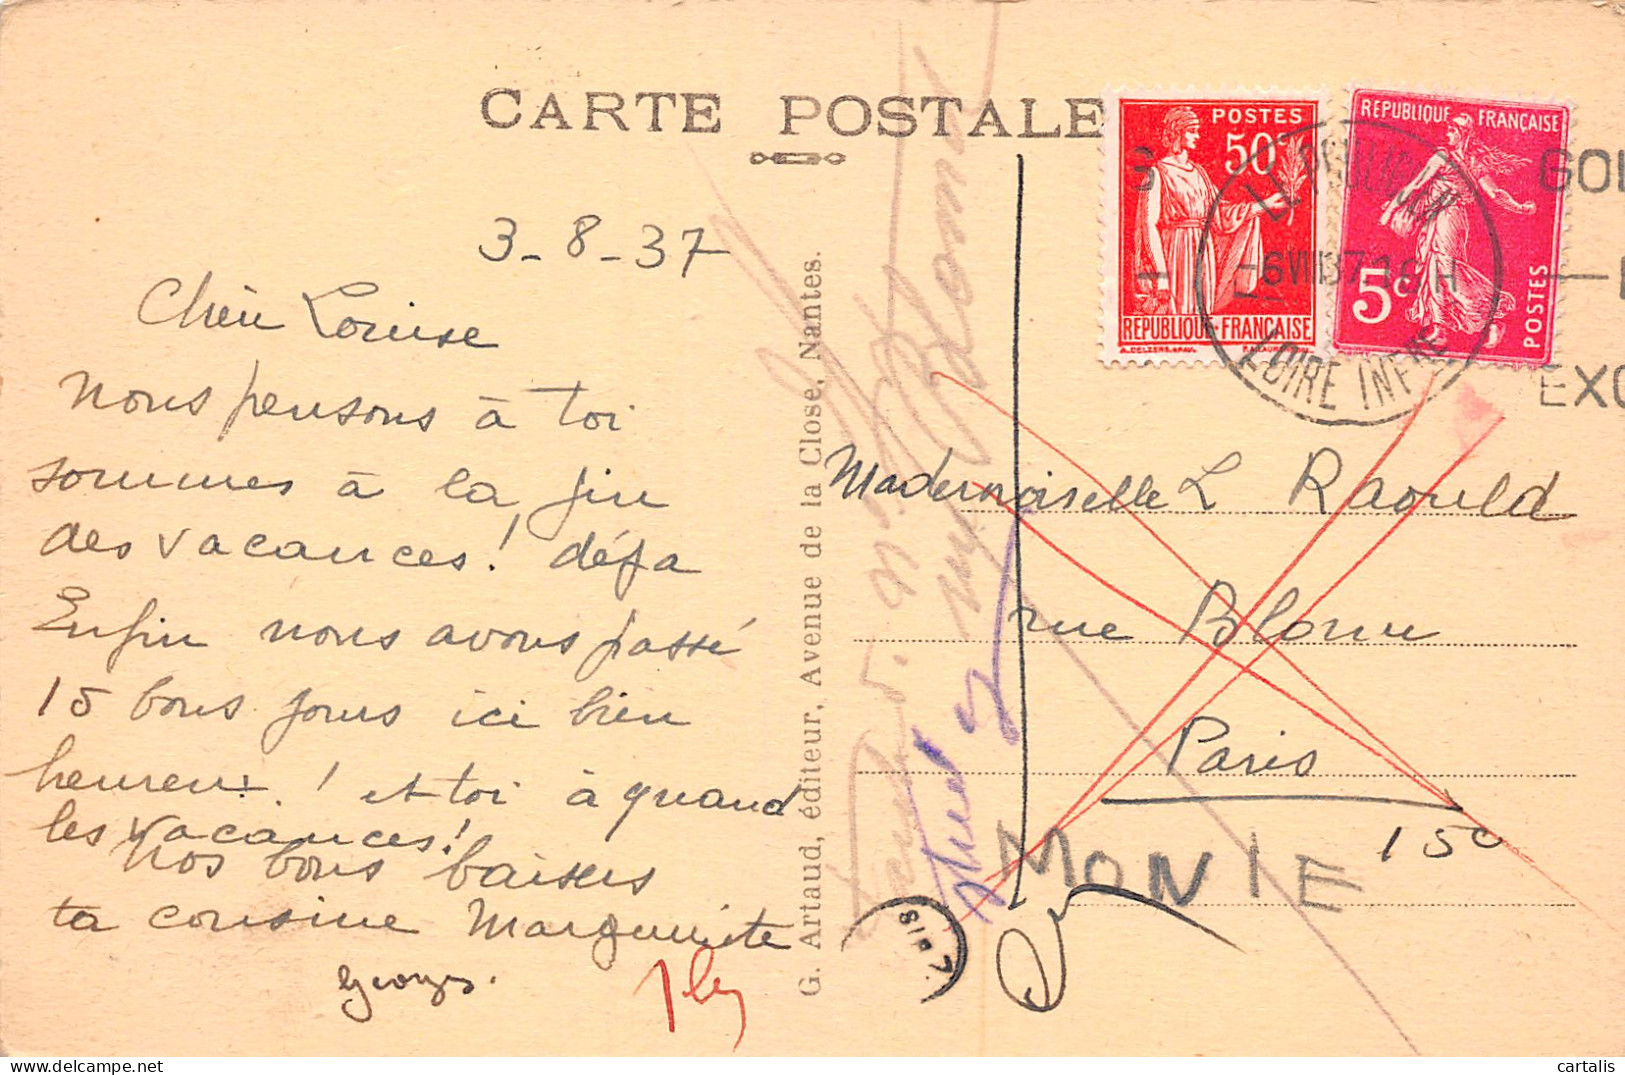 CARTE POSTALE
3-8-37
Chèri Louise
nous pensons à toi
sommes à la fin
des vacances! déja
Enfin nous avons passé
15 bons jours ici bien
heureux! et toi à quand
les vacances!
Nos bons baisers
ta cousine Marguerite
Georges.
G. Artaud, éditeur, Avenue de la Close, Nantes.
POSTES
50c
REPUBLIQUE FRANÇAISE
REPUBLIQUE FRANÇAISE
5c
POSTES
LE POULIGUEN
-6 VIII 37 18 H
LOIRE INFRE
GOL
EXC
Mademoiselle L Raould
rue Blomu
Paris
150
MONIE
Blomet
cartalis